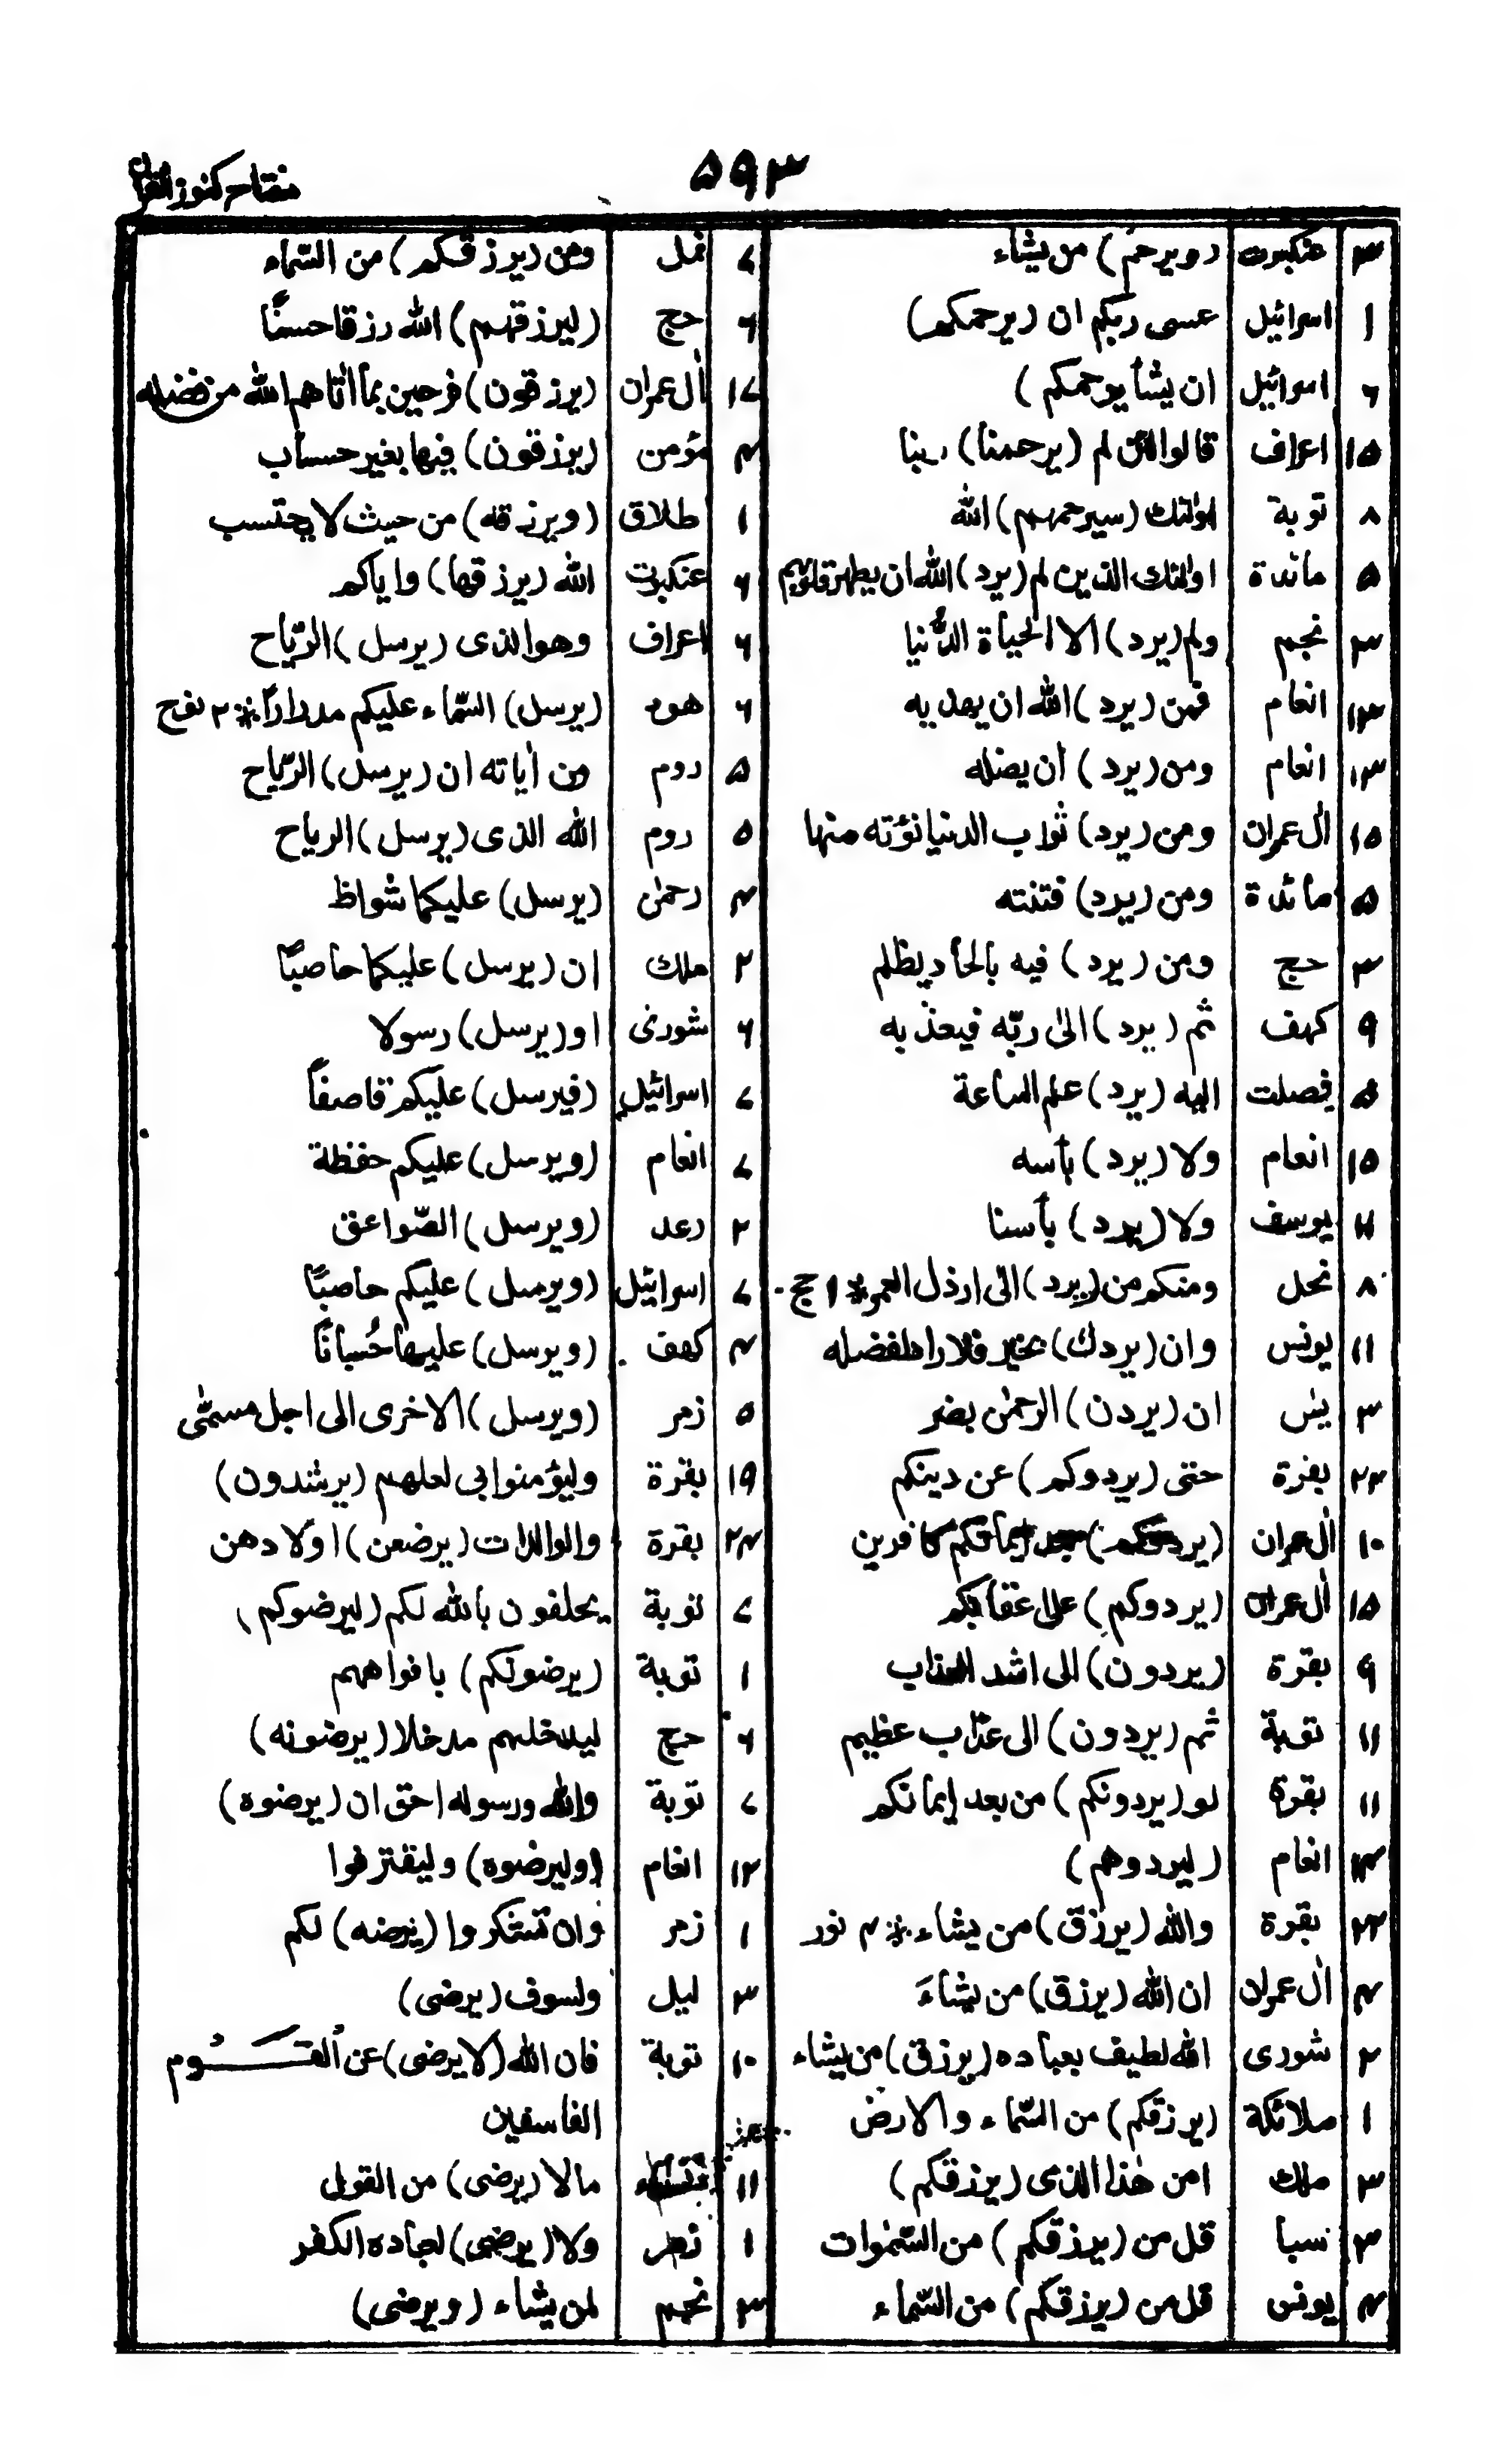 ۵۹۳
مفتاح كنوز القرآن
۳ عنكبوت (ويرحم) من يشاء
۱ اسرائيل عسى ربكم ان (يرحمكم)
۶ اسرائيل ان يشأ يرحمكم)
۱۵ اعراف قالوا لئن لم (يرحمنا) ربنا
۸ توبة اولئك (سيرحمهم) الله
۵ مائدة اولئك الذين لم (يرد) الله ان يطهر قلوبهم
۳ نجم ولم (يرد) الا الحياة الدنيا
۱۳ انعام فمن (يرد) الله ان يهديه
۱۳ انعام ومن (يرد) ان يضله
۱۵ اٰل عمران ومن (يرد) ثواب الدنيا نؤته منها
۵ مائدة ومن (يرد) فتنته
۳ حج ومن (يرد) فيه بالحاد بظلم
۹ كهف ثم (يرد) الىٰ ربّه فيعذبه
۵ فصلت اليه (يرد) علم الساعة
۱۵ انعام ولا (يرد) بأسه
۱۱ يوسف ولا (يرد) بأسنا
۸ نحل ومنكم من (يرد) الى ارذل العمر * ۱ حج
۱۱ يونس وان (يردك) بخير فلا راد لفضله
۳ يٰس ان (يردن) الرحمٰن بضر
۲۳ بقرة حتى (يردوكم) عن دينكم
۱۰ اٰل عمران (يردوكم) بعد ايمانكم كافرين
۱۵ اٰل عمران (يردوكم) على اعقابكم
۹ بقرة (يردون) الى اشد العذاب
۱۱ توبة ثم (يردون) الى عذاب عظيم
۱۱ بقرة لو (يردونكم) من بعد ايمانكم
۱۳ انعام (ليردوهم)
۲۳ بقرة والله (يرزق) من يشاء * ۴ نور
۴ اٰل عمران ان الله (يرزق) من يشاءَ
۲ شورى الله لطيف بعباده (يرزق) من يشاء
۱ ملائكة (يرزقكم) من السّماء والارض
۳ ملك امن هٰذا الذى (يرزقكم)
۳ سبأ قل من (يرزقكم) من السّمٰوات
۴ يونس قل من (يرزقكم) من السّماء
۷ نمل ومن (يرزقكم) من السّماء
۶ حج (ليرزقنهم) الله رزقا حسنًا
۱۷ اٰل عمران (يرزقون) فرحين بما اٰتاهم الله من فضله
۴ مؤمن (يرزقون) فيها بغير حساب
۱ طلاق (ويرزقه) من حيث لا يحتسب
۶ عنكبوت الله (يرزقها) واياكم
۶ اعراف وهو الذى (يرسل) الرّياح
۶ هود (يرسل) السّماء عليكم مدرارًا * ۲ نوح
۵ روم من اٰياته ان (يرسل) الرّياح
۵ روم الله الذى (يرسل) الرياح
۴ رحمٰن (يرسل) عليكما شواظ
۲ ملك ان (يرسل) عليكما حاصبًا
۶ شورىٰ او (يرسل) رسولا
۷ اسرائيل (فيرسل) عليكم قاصفاً
۷ انعام (ويرسل) عليكم حفظة
۲ رعد (ويرسل) الصّواعق
۷ اسرائيل (ويرسل) عليكم حاصبًا
۴ كهف (ويرسل) عليها حُسبانًا
۵ زمر (ويرسل) الاخرى الى اجل مسمّى
۱۹ بقرة وليؤمنوا بى لعلهم (يرشدون)
۲۴ بقرة والوالدات (يرضعن) اولادهن
۷ توبة يحلفون بالله لكم (ليرضوكم)
۱ توبة (يرضونكم) بافواههم
۶ حج ليدخلنهم مدخلا (يرضونه)
۷ توبة والله ورسوله احق ان (يرضوه)
۱۲ انعام (وليرضوه) وليقترفوا
۱ زمر وان تشكروا (يرضه) لكم
۳ ليل ولسوف (يرضى)
۱۰ توبة فان الله (لا يرضى) عن القوم
الفاسقين
۱۱ مالا (يرضى) من القول
۱ زمر ولا (يرضى) لعباده الكفر
۳ نجم لمن يشاء (ويرضى)